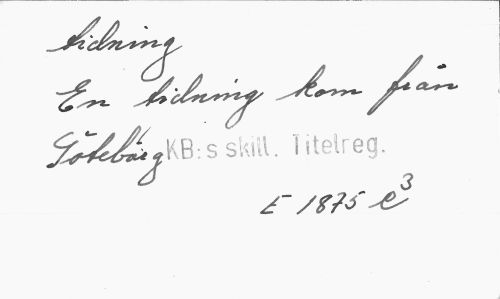 tidning
En tidning kom från
Göteborg KB:s skill. Titelreg.
E 1875 e³